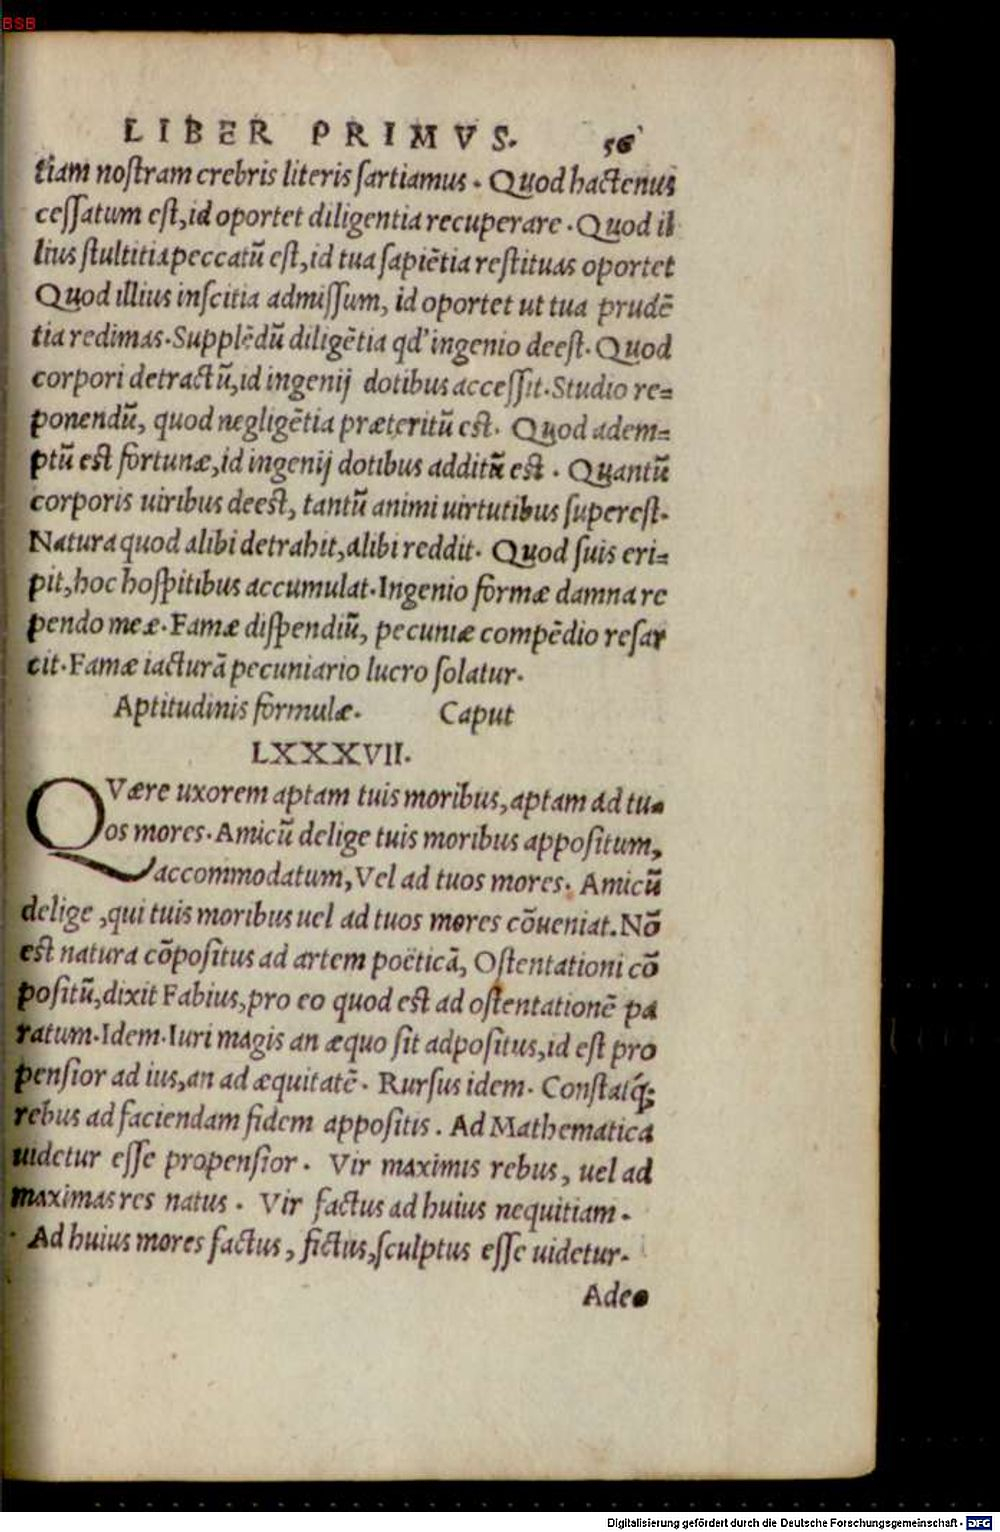 BSB
LIBER PRIMVS. 56
tiam nostram crebris literis sartiamus. Quod hactenus
cessatum est, id oportet diligentia recuperare. Quod il
lius stultitia peccatũ est, id tua sapiẽtia restituas oportet
Quod illius inscitia admissum, id oportet ut tua prudẽ
tia redimas. Supplẽdũ diligẽtia qd' ingenio deest. Quod
corpori detractũ, id ingenij dotibus accessit. Studio re=
ponendũ, quod negligẽtia præteritũ est. Quod adem=
ptũ est fortunæ, id ingenij dotibus additũ est. Quantũ
corporis uiribus deest, tantũ animi uirtutibus superest.
Natura quod alibi detrahit, alibi reddit. Quod suis eri=
pit, hoc hospitibus accumulat. Ingenio formæ damna re
pendo meæ. Famæ dispendiũ, pecuniæ compẽdio resar
cit. Famæ iacturã pecuniario lucro solatur.
Aptitudinis formulæ. Caput
LXXXVII.
QVære uxorem aptam tuis moribus, aptam ad tu=
os mores. Amicũ delige tuis moribus appositum,
accommodatum, Vel ad tuos mores. Amicũ
delige, qui tuis moribus uel ad tuos mores cõueniat. Nõ
est natura cõpositus ad artem poëticã, Ostentationi cõ
positũ, dixit Fabius, pro eo quod est ad ostentationẽ pa
ratum. Idem. Iuri magis an æquo sit adpositus, id est pro
pensior ad ius, an ad æquitatẽ. Rursus idem. Constatq́;
rebus ad faciendam fidem appositis. Ad Mathematica
uidetur esse propensior. Vir maximis rebus, uel ad
maximas res natus. Vir factus ad huius nequitiam.
Ad huius mores factus, fictus, sculptus esse uidetur.
Adeo
Digitalisierung gefördert durch die Deutsche Forschungsgemeinschaft - DFG